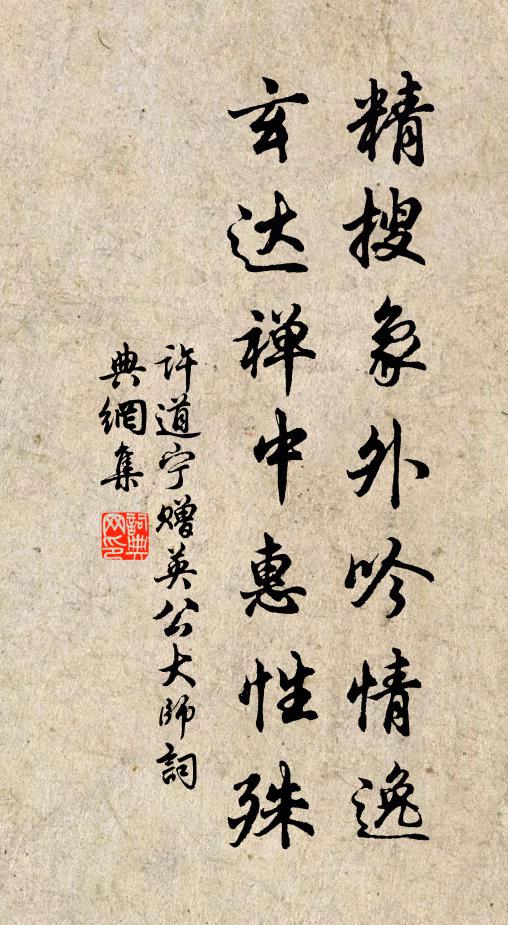 精搜象外吟情逸
玄达禅中惠性殊
许道宁赠英公大师词
典網集
詞典网印